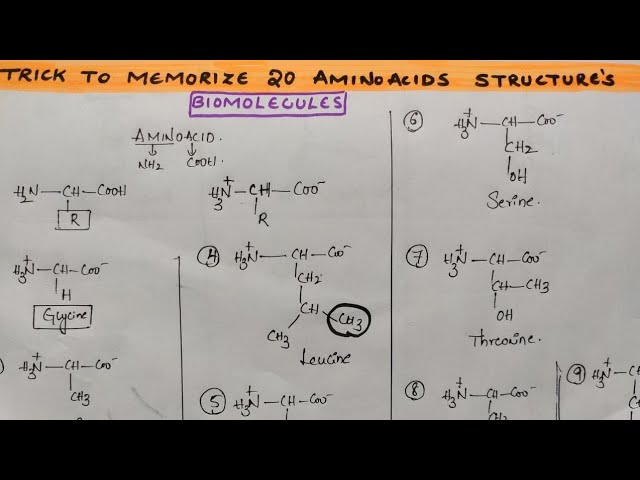 TRICK TO MEMORIZE 20 AMINOACIDS STRUCTURE'S
BIOMOLECULES
AMINOACID.
NH2 COOH.
H2N—CH—COOH
R
H3N+—CH—COO-
R
H3N+—CH—COO-
H
Glycine
H3N+—CH—COO-
CH3
4 H3N+—CH—COO-
CH2
CH
CH3 CH3
Leucine
5 H3N+—CH—COO-
6 H3N+—CH—COO-
CH2
OH
Serine.
7 H3N+—CH—COO-
CH—CH3
OH
Threonine.
8 H3N+—CH—COO-
CH2
9 H3N+